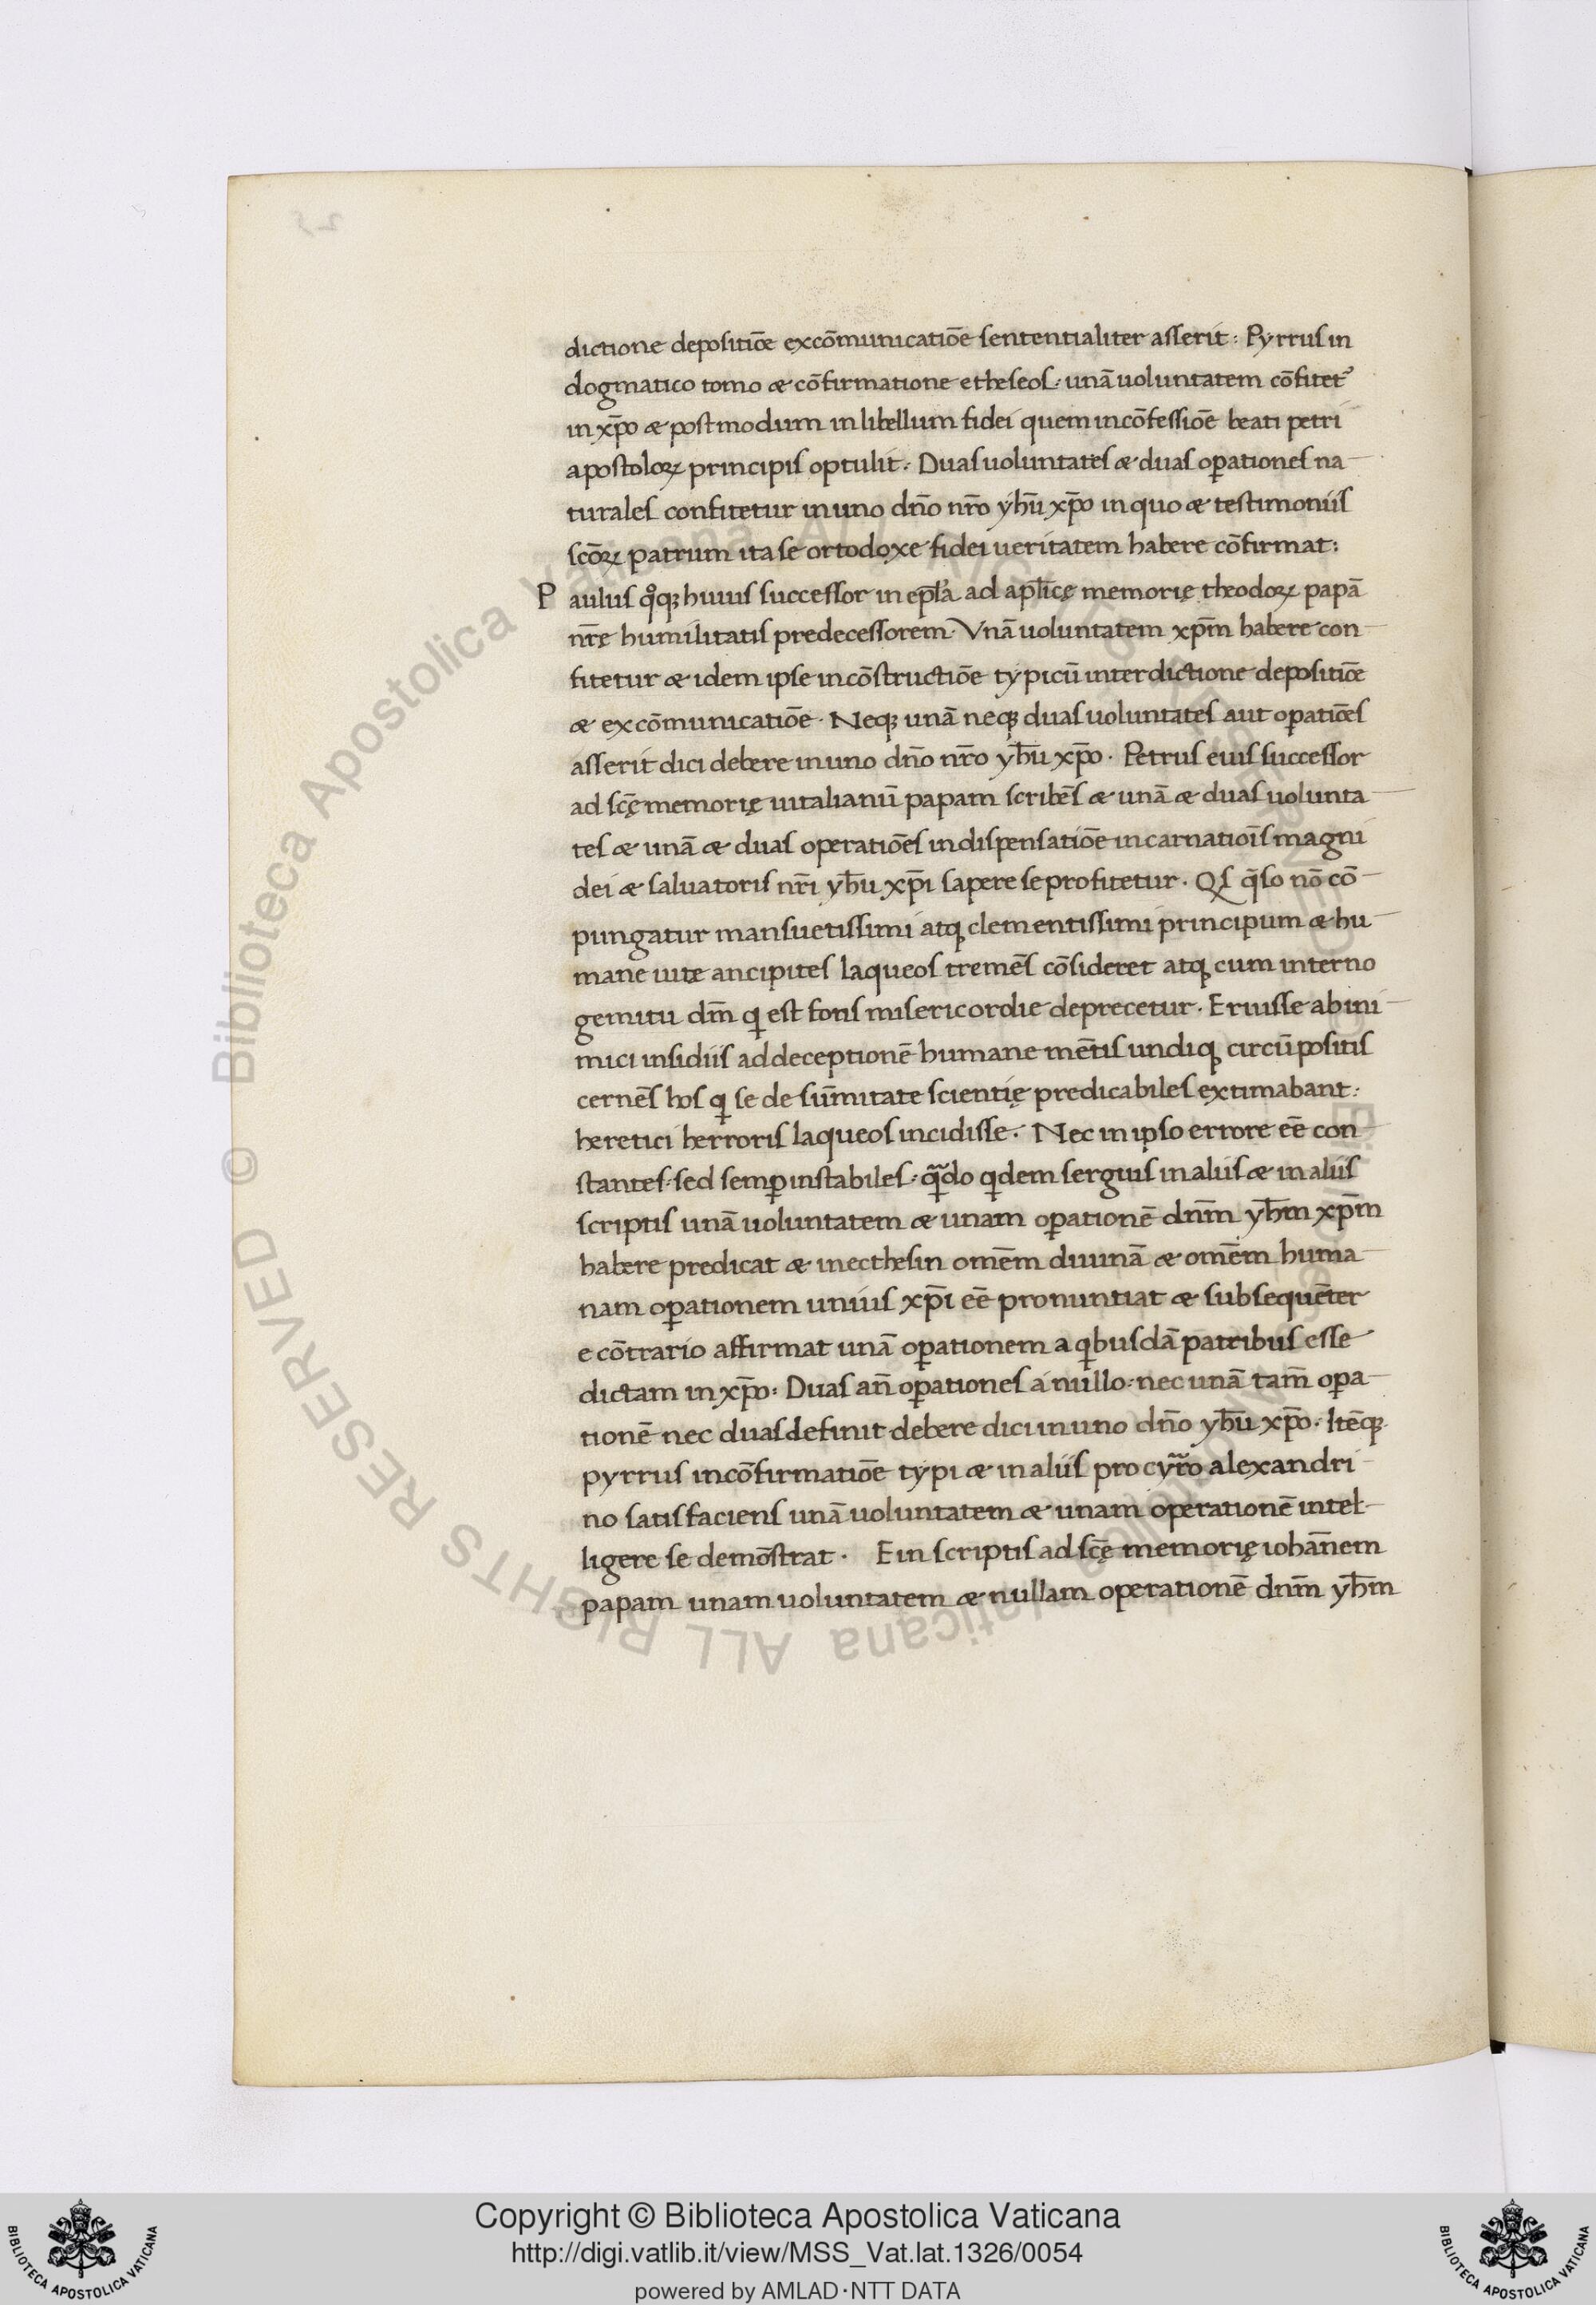 dictione depositiōe excōmunicatiōe sententialiter asserit: Pyrrus in
dogmatico tomo & cōfirmatione etheseos: unā uoluntatem cōfitet᷒
in xp̄o & postmodum in libellum fidei quem in cōfessiōe beati petri
apostoloꝝ principis optulit: Duas uoluntates & duas oꝑationes na-
turales confitetur in uno dn̄o nr̄o yh̄u xp̄o in quo & testimoniis
scōꝝ patrum ita se ortodoxe fidei ueritatem habere cōfirmat:
Paulus qͦqꝫ huius successor in ep̄la ad apl̄icę memorię theodoꝝ papā
nr̄ę humilitatis predecessorem. Vnā uoluntatem xp̄m habere con-
fitetur & idem ipse in cōstructiōe typicū interdictione depositiōe
& excōmunicatiōe. Neqꝫ unā neqꝫ duas uoluntates aut oꝑatiōes
asserit dici debere in uno dn̄o nr̄o yh̄u xp̄o. Petrus eius successor
ad scę̄ memorię uitalianū papam scribēs & unā & duas uolunta-
tes & unā & duas operatiōes in dispensatiōe incarnatiōis magni
dei & saluatoris nr̄i yh̄u xp̄i sapere se profitetur. Qs q̄so nō cō-
pungatur mansuetissimi atqꝫ clementissimi principum & hu-
mane uite ancipites laqueos tremēs cōsideret atqꝫ cum interno
gemitu dm̄ ꝗ est fons misericordie deprecetur. Eruisse ab ini-
mici insidiis ad deceptionē humane mētis undiqꝫ circūpositis
cernēs hos ꝗ se de sūmitate scientię predicabiles extimabant:
heretici herroris laqueos incidisse. Nec in ipso errore eē con-
stantes. sed semꝑ instabiles. qᷓdo ꝗdem sergius in aliis & in aliis
scriptis unā uoluntatem & unam oꝑationē dnm̄ yh̄m xp̄m
habere predicat & in ecthesin omēm diuinā & omēm huma-
nam oꝑationem unius xp̄i eē pronuntiat & subsequēter
e cōtrario affirmat unā oꝑationem a ꝗbusdā patribus esse
dictam in xp̄o: Duas an̄ oꝑationes á nullo: nec unā tam̄ oꝑa-
tionē nec duas definit debere dici in uno dn̄o yh̄u xp̄o. Itēqꝫ
pyrrus in cōfirmatiōe typi & in aliis pro cyro alexandri-
no satisfaciens unā uoluntatem & unam operationē intel-
ligere se demōstrat. E in scriptis ad scę̄ memorię iohānem
papam unam uoluntatem & nullam operationē dnm̄ yh̄m
© Biblioteca Apostolica Vaticana ALL RIGHTS RESERVED
Copyright © Biblioteca Apostolica Vaticana
http://digi.vatlib.it/view/MSS_Vat.lat.1326/0054
powered by AMLAD·NTT DATA
BIBLIOTECA APOSTOLICA VATICANA
BIBLIOTECA APOSTOLICA VATICANA